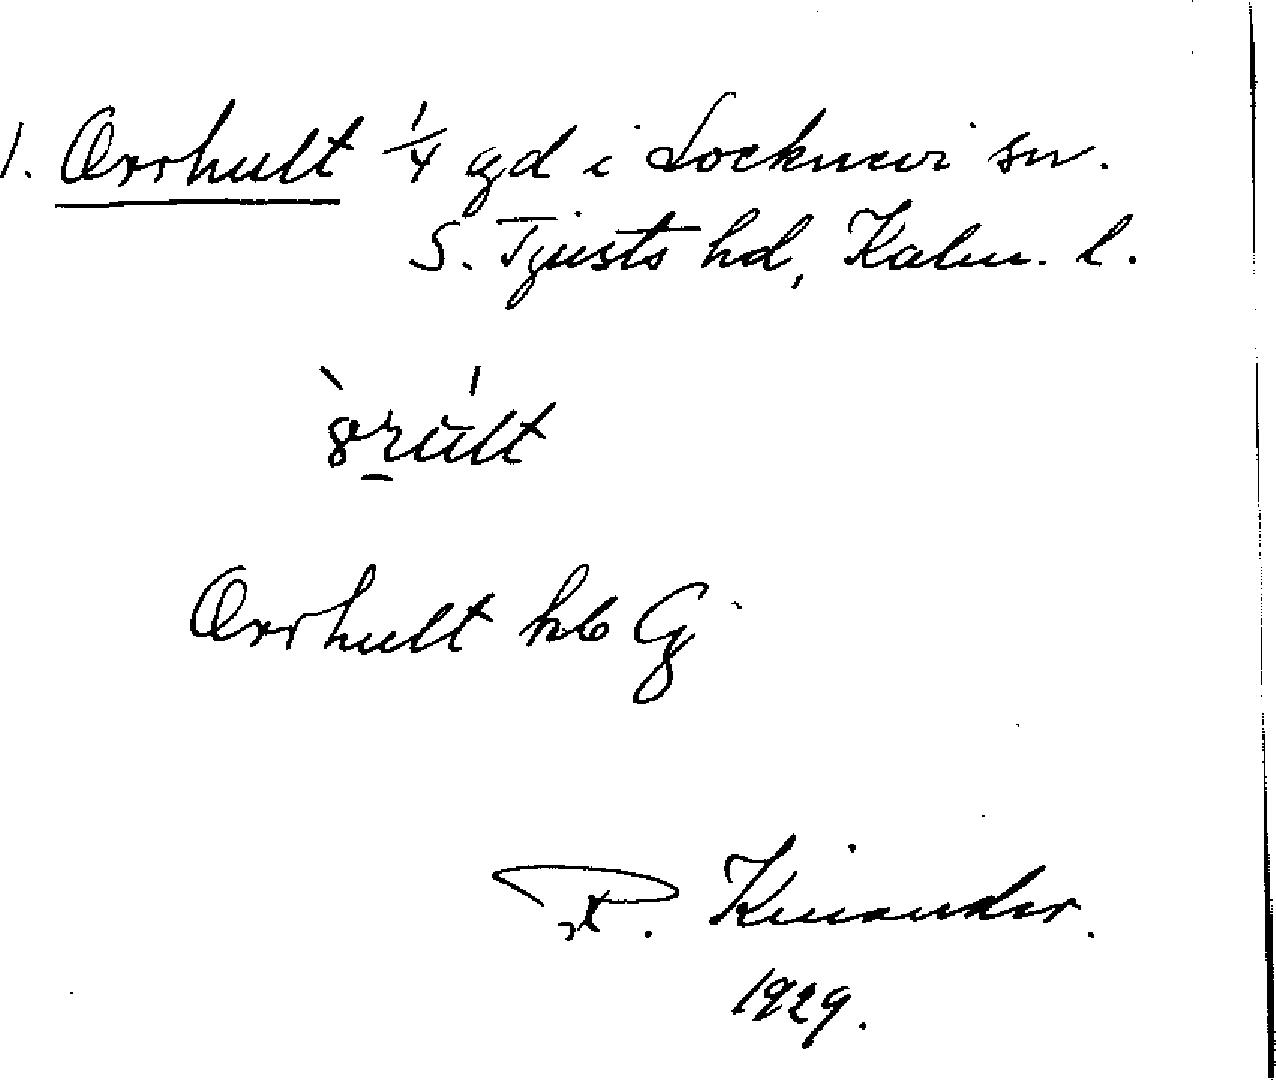 1. Orrhult ¼ gd i Locknevi sn.
S. Tjusts hd, Kalm. l.
Orrhult hb Gj
R. Kinander.
1929.